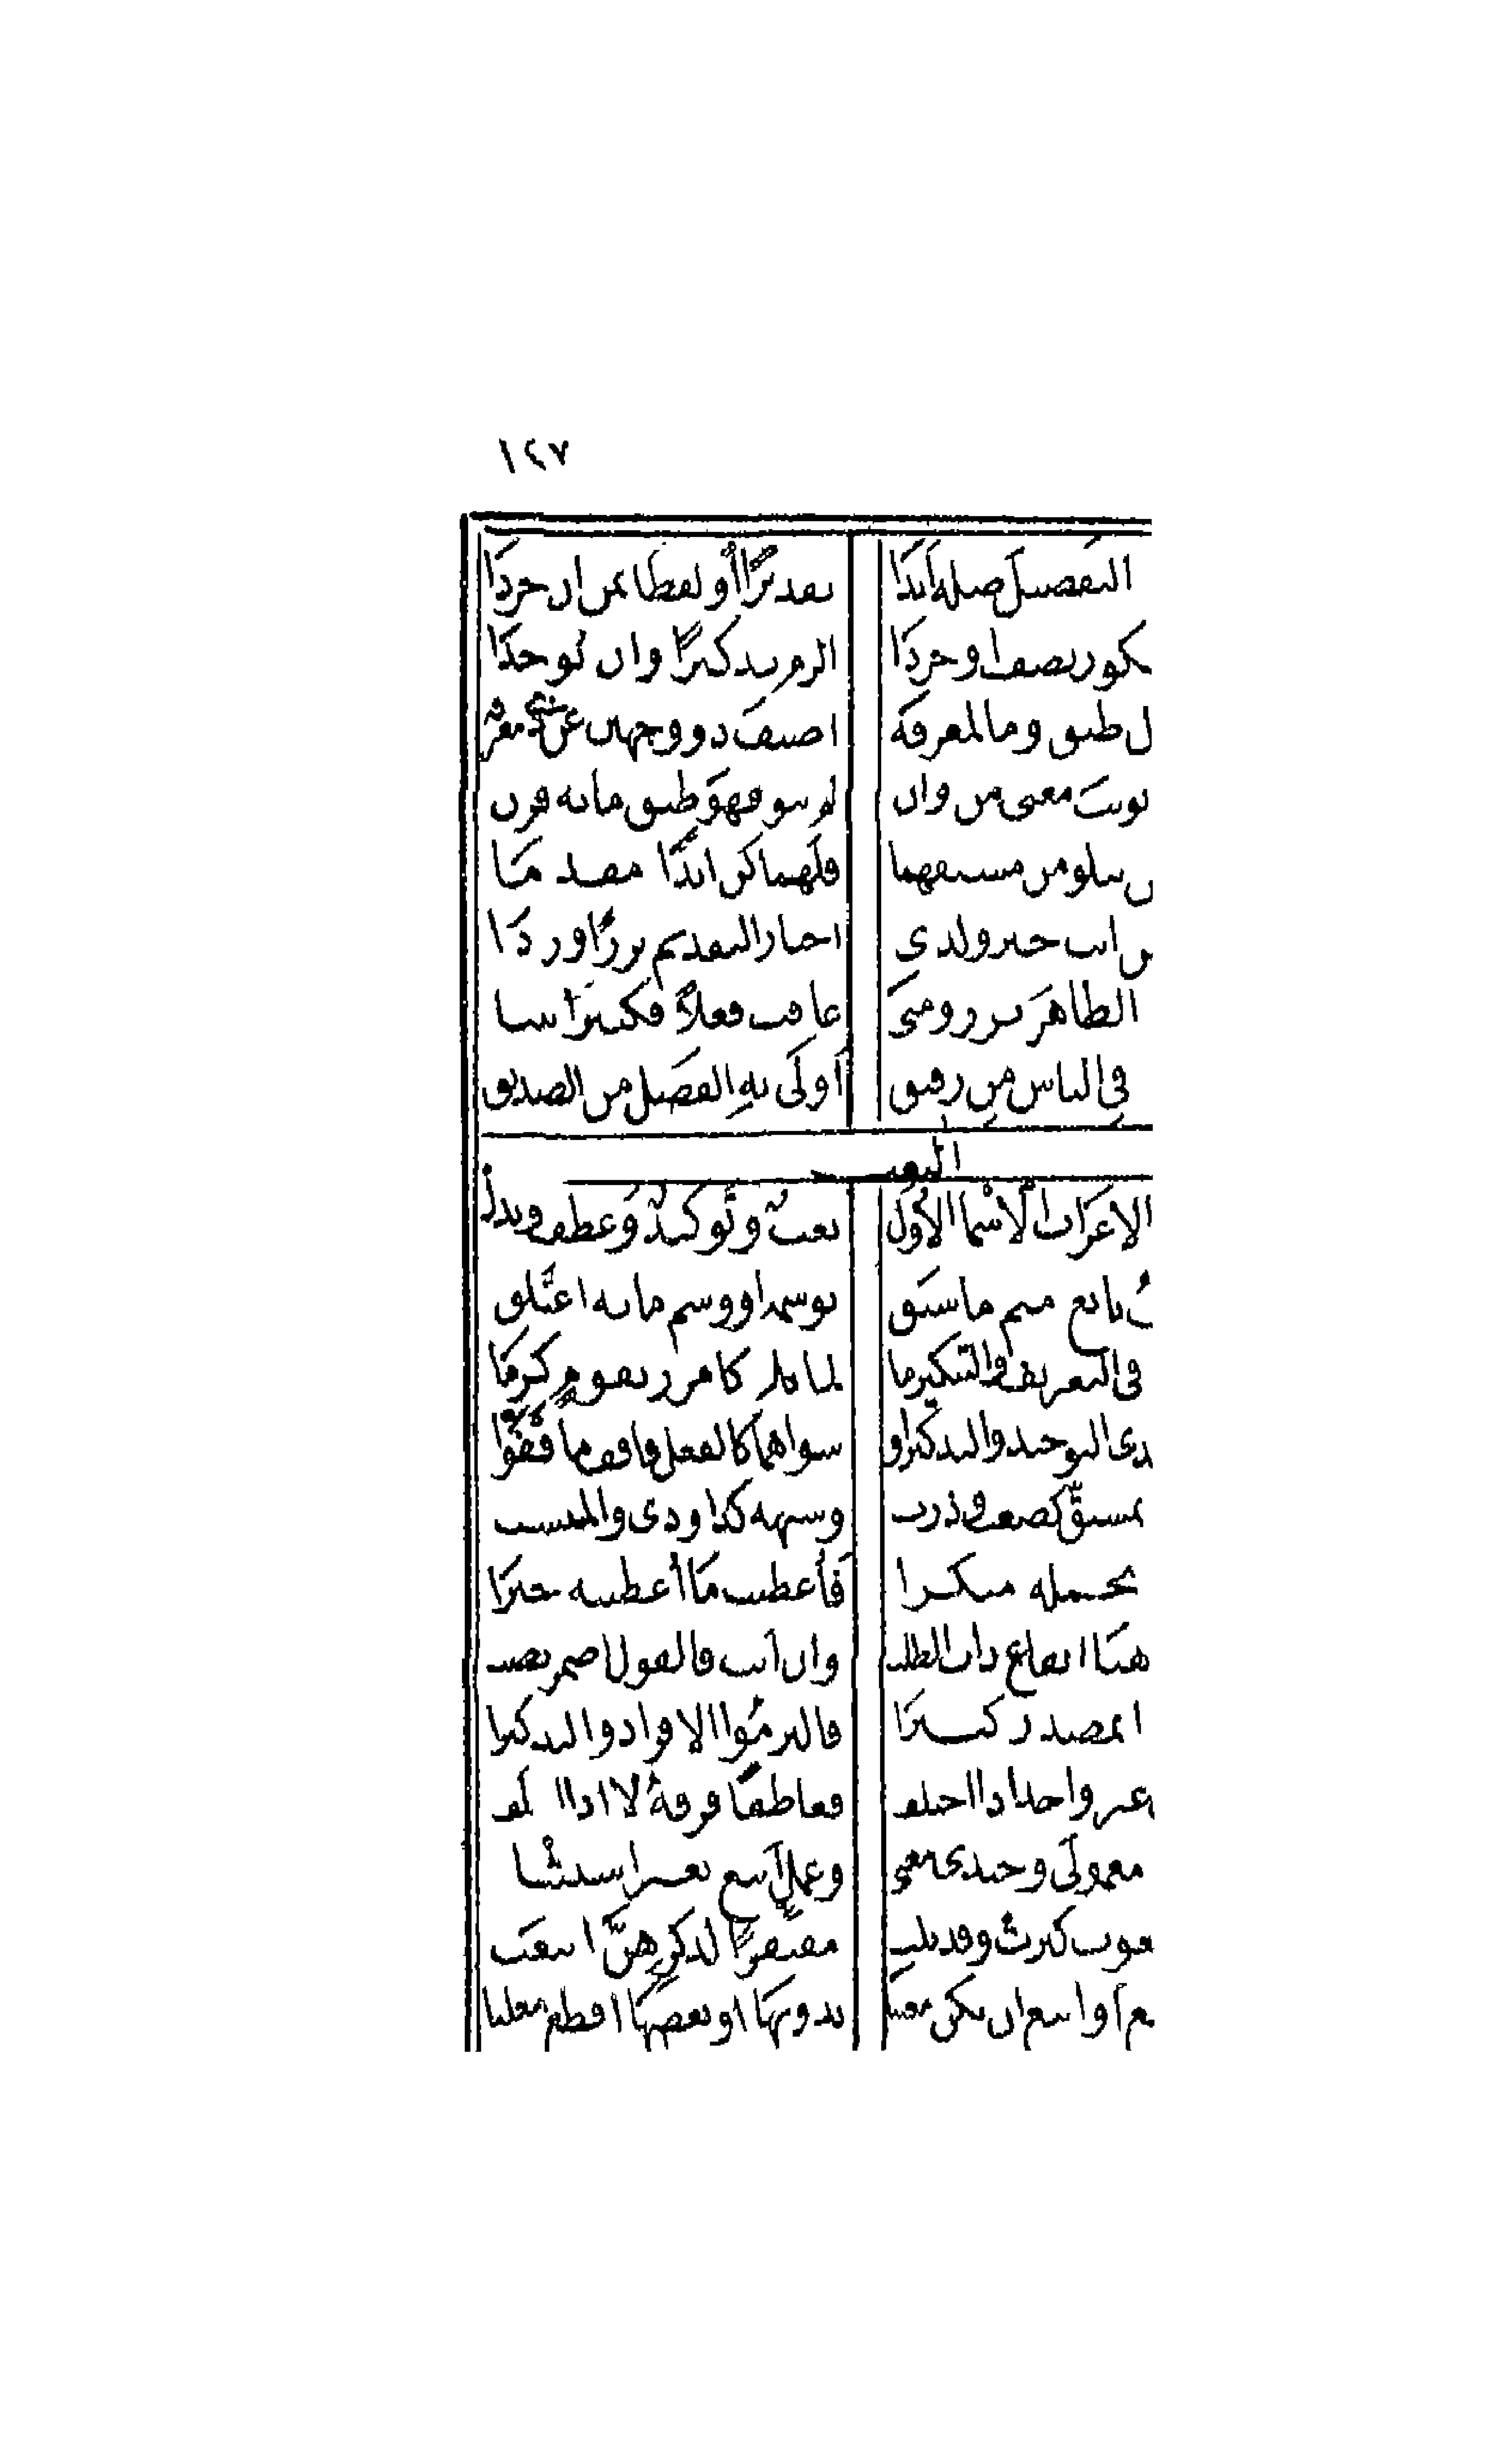 ١٢٧
التفضيل صله أبدا تقديرا أو لفظا بمن ان جردا
بنكور يضف او جردا الزم تذكيرا وان توحدا
ل طبق وما لمعرفه اضيف ذو وجهين عن ذي معرفه
نويت معنى من وان لم تنو فهو طبق ما به قرن
ن بتلو من مستفهما فلهما كن ابدا مقدما
من انت خير ولدى اخبار التقديم نزرا وردا
الظاهر نزر ومتى عاقب فعلا فكثيرا ثبتا
في الناس من رفيق أولى به الفضل من الصديق
النعت
الاعراب الأسما الأول نعت وتوكيد وعطف وبدل
تابع متم ما سبق بوسمه او وسم ما به اعتلق
في التعريف والتنكير ما لما تلا كامرر بقوم كرما
دى التوحيد والتذكير او سواهما كالفعل فاقف ما قفوا
بمشتق كصعب وذرب وشبهه كذا وذى والمنتسب
بجمله منكرا فأعطيت ما أعطيته خبرا
هنا ايقاع ذات الطلب وان أتت فالقول اضمر تصب
ا بمصدر كثيرا فالتزموا الافراد والتذكيرا
غير واحد اذا اختلف فعاطفا فرقه لا اذا ائتلف
معمولى وحيدى معنى وعمل أتبع بغير استثنا
نعوت كثرت وقد تلت مفتقرا لذكرهن اتبعت
ع أو اتبع ان يكن معينا بدونها او بعضها اقطع معلنا